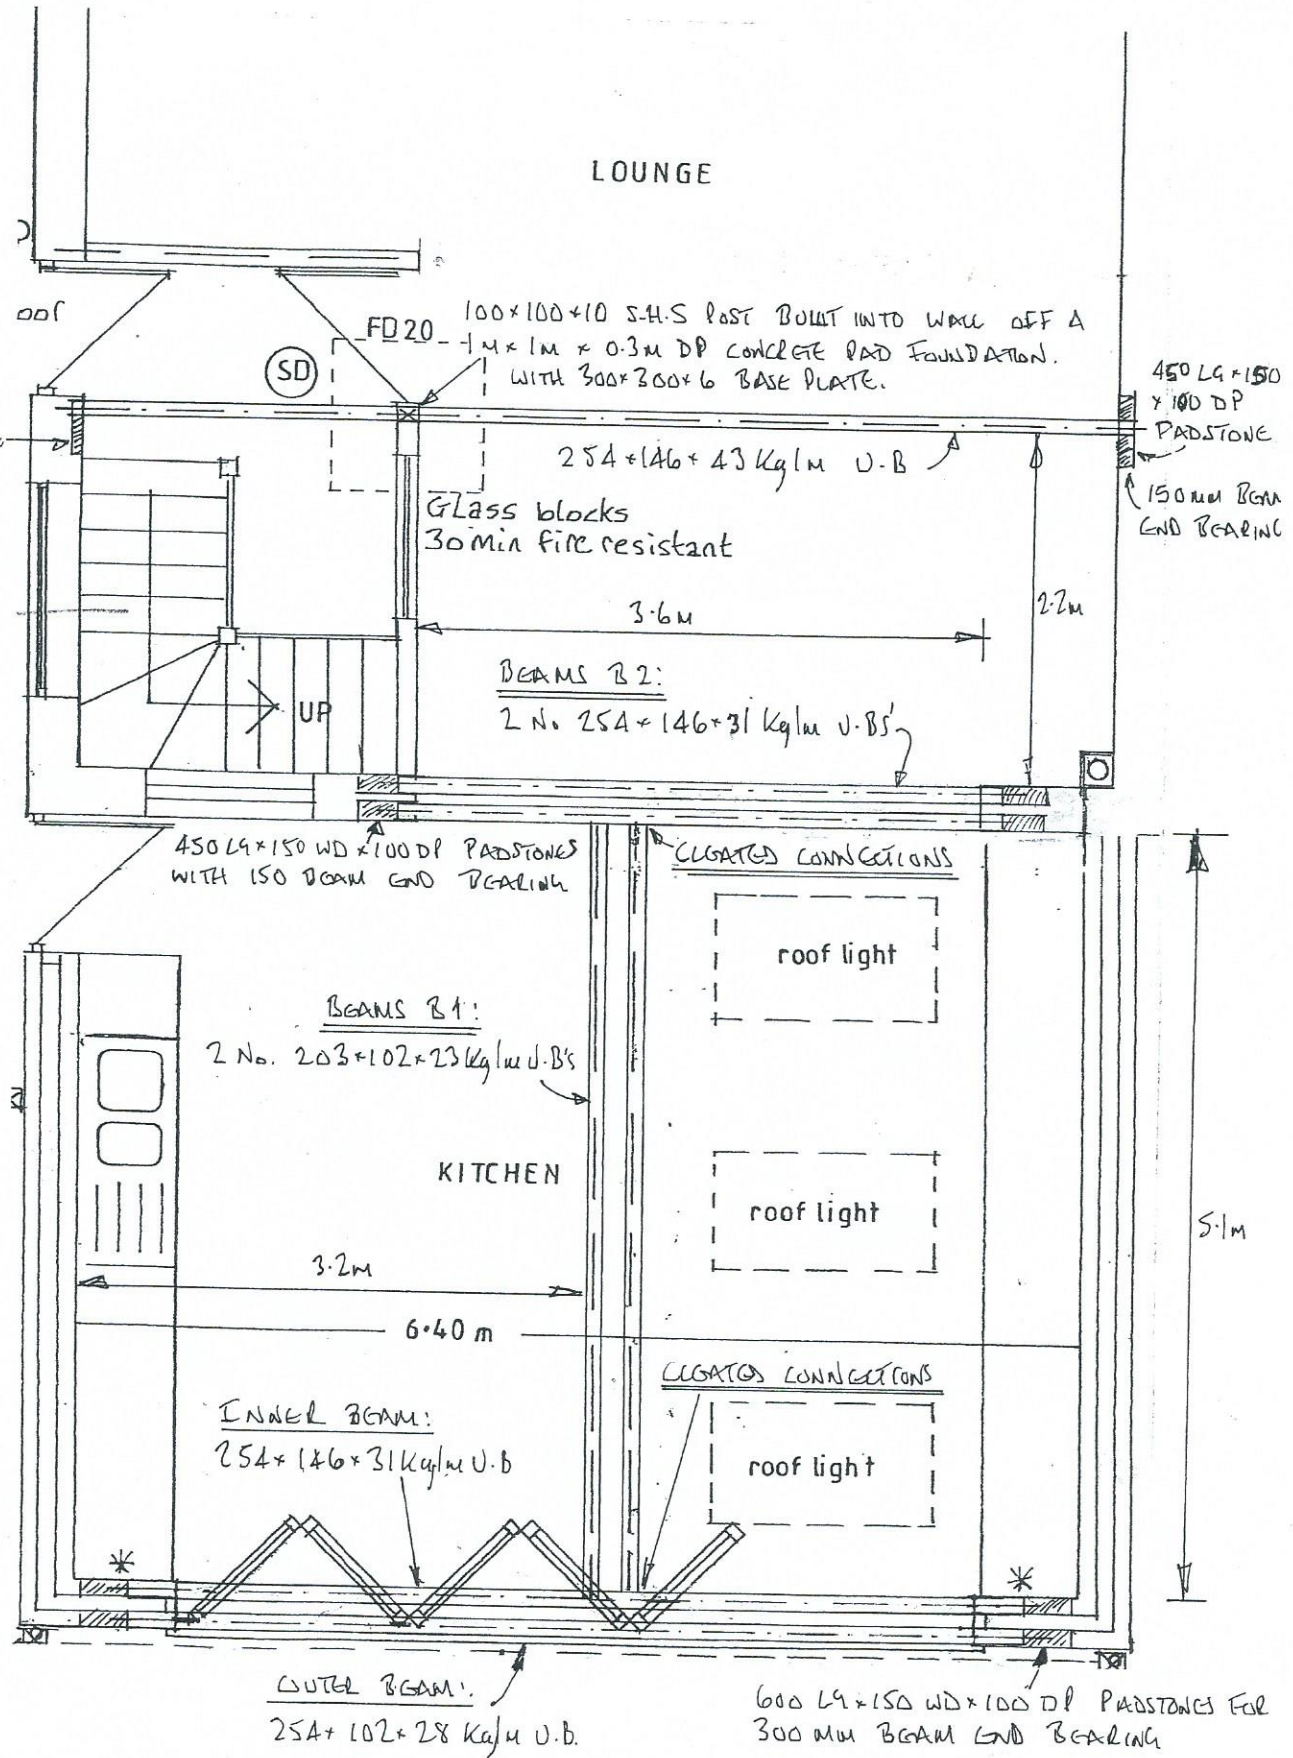 LOUNGE
oof
FD20
SD
100×100×10 S.H.S POST BUILT INTO WALL OFF A
1M × 1M × 0.3M DP CONCRETE PAD FOUNDATION.
WITH 300×300×6 BASE PLATE.
450 LG × 150
× 100 DP
PADSTONE
254×146×43 Kg/m U.B
150mm BEAM
END BEARING
Glass blocks
30 Min fire resistant
3.6M
2.2m
BEAMS B2:
2 No. 254×146×31 Kg/m U.BS'
UP
450 LG×150 WD×100DP PADSTONES
WITH 150 BEAM END BEARING
CLEATED CONNECTIONS
roof light
BEAMS B1:
2 No. 203×102×23 Kg/m U.B's
KITCHEN
roof light
5.1m
3.2M
6.40 m
CLEATED CONNECTIONS
INNER BEAM:
254×146×31Kg/m U.B
roof light
OUTER BEAM:
254×102×28 Kg/M U.B.
600 LG×150 WD×100 DP PADSTONES FOR
300 MM BEAM END BEARING